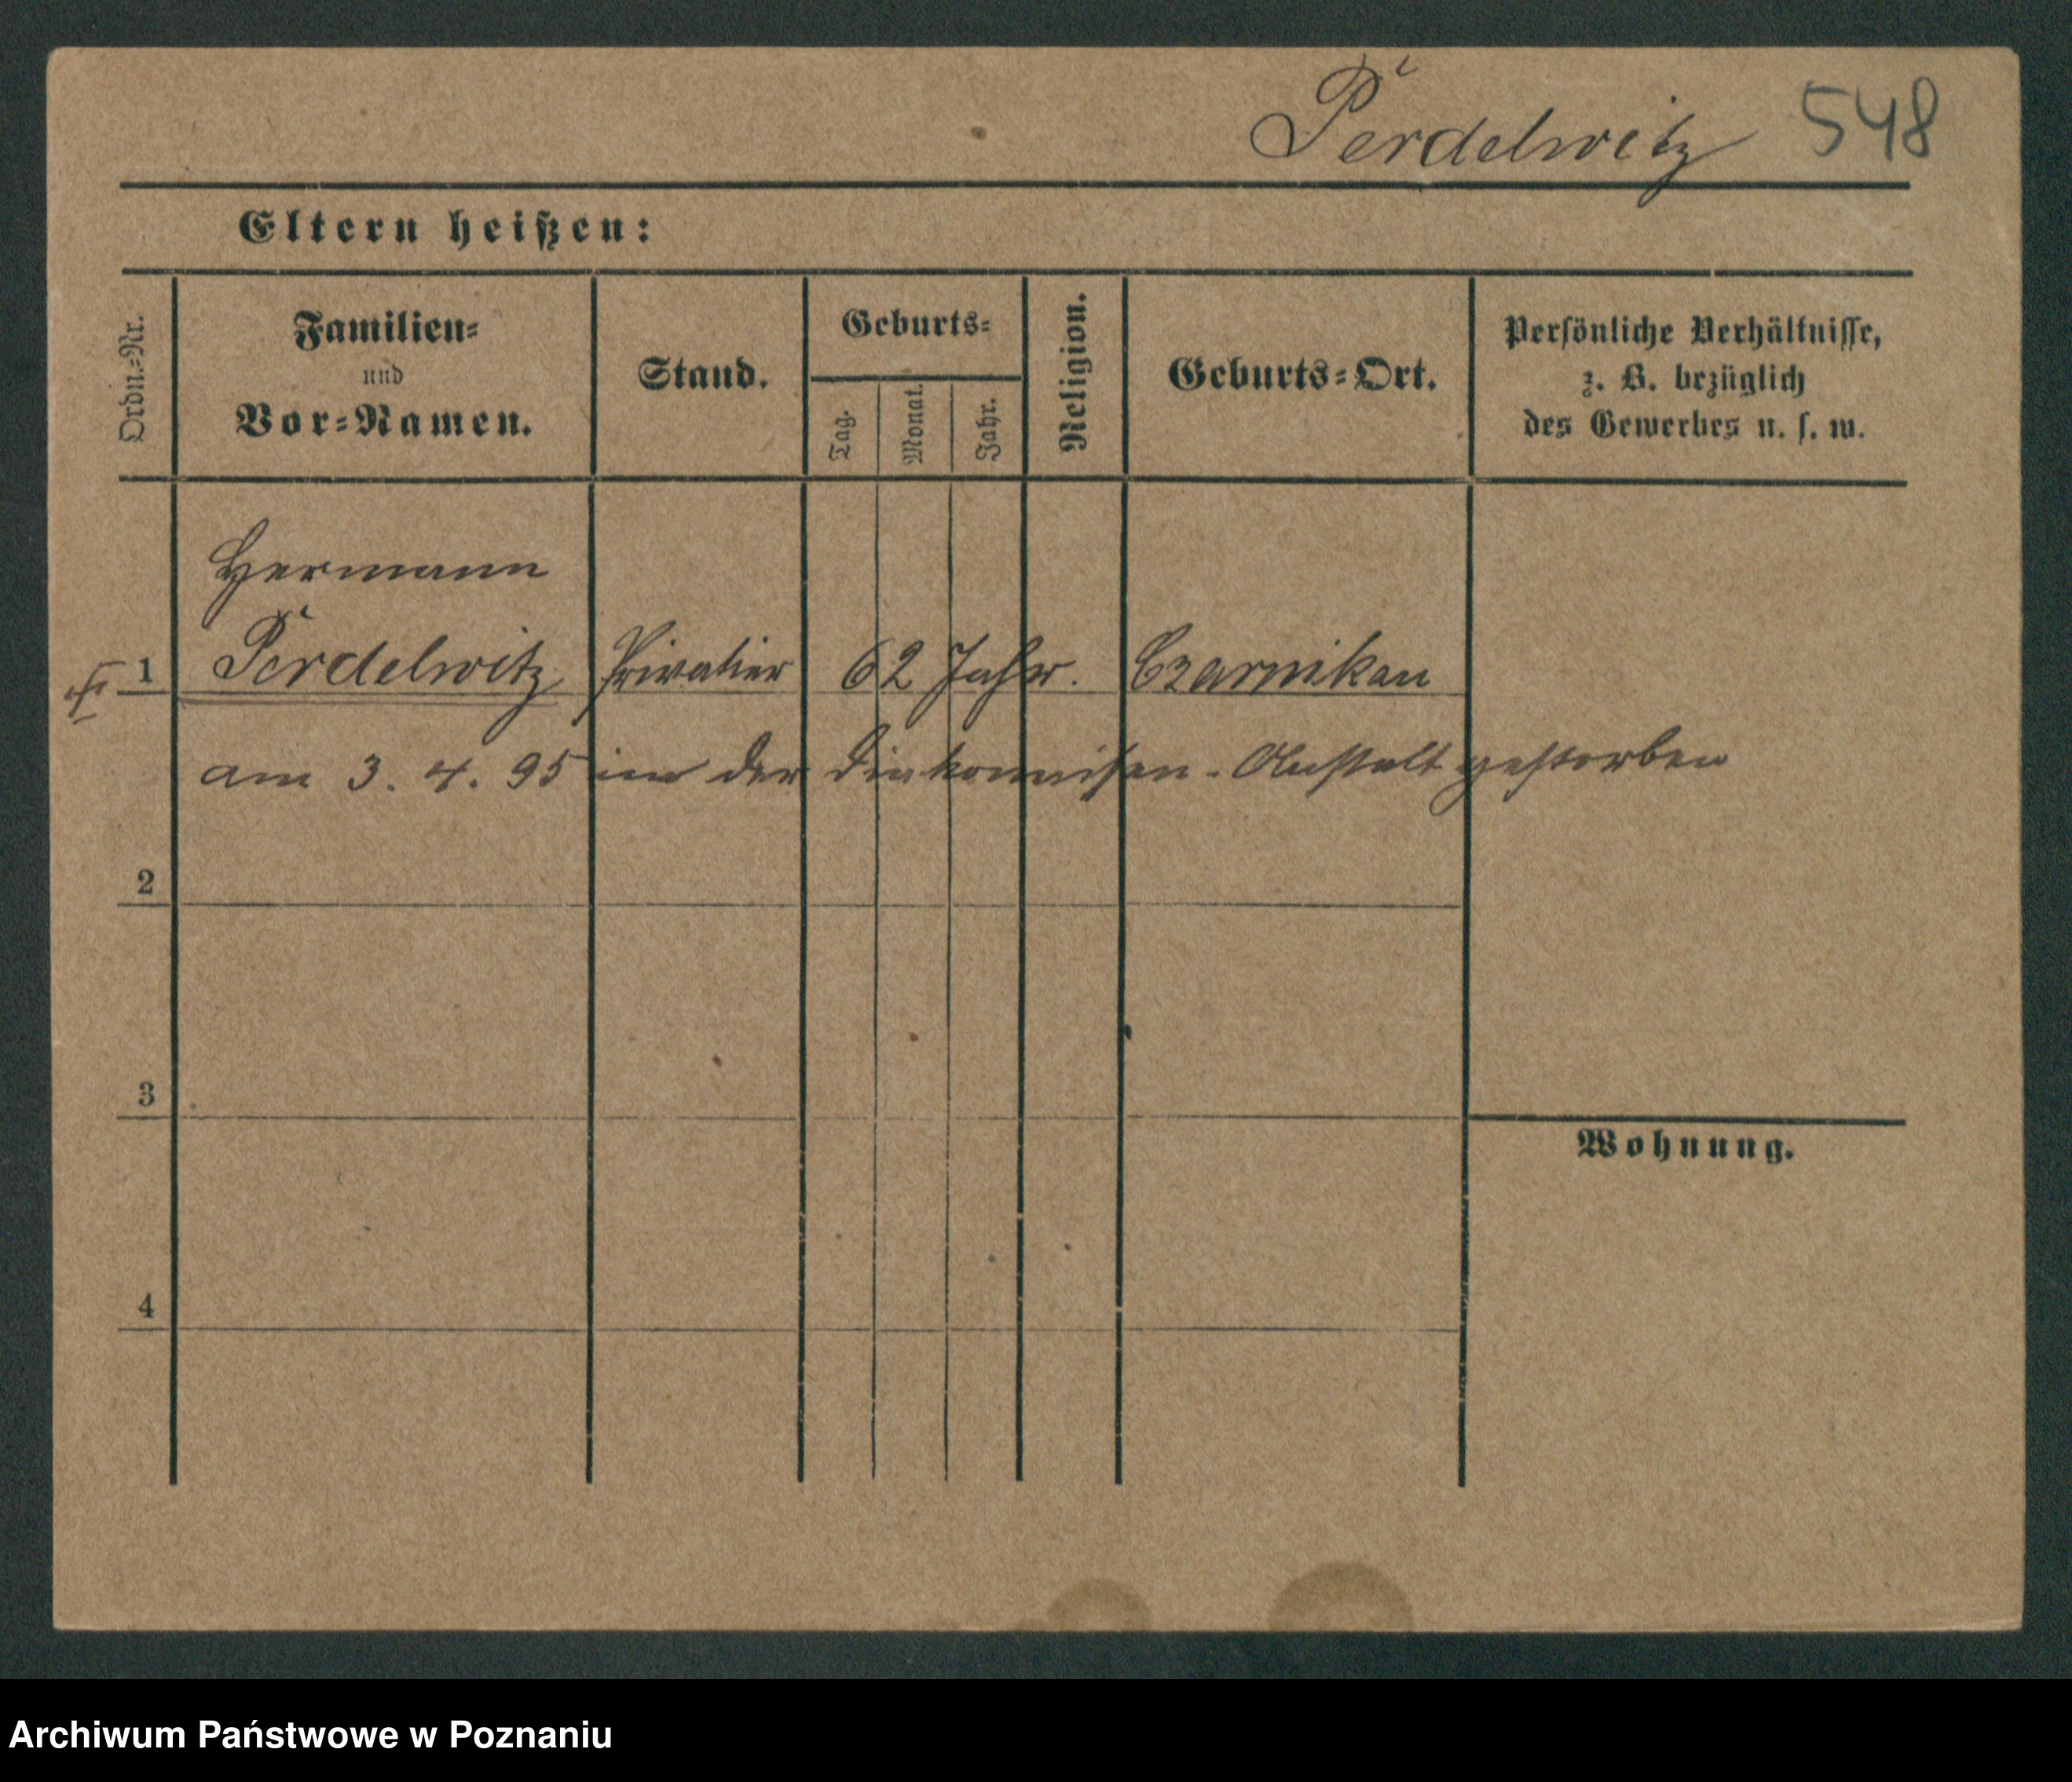 Perdelwitz 548
Eltern heißen:
Ordn.-Nr.
Familien-
und
Vor-Namen.
Stand.
Geburts-
Tag.
Monat.
Jahr.
Religion.
Geburts-Ort.
Persönliche Verhältnisse,
z. B. bezüglich
des Gewerbes u. s. w.
Hermann
1 Perdelwitz Privatier 62 Jahr. Czarnikau
am 3. 4. 95 in der Diakonissen-Anstalt gestorben
2
3
Wohnung.
4
Archiwum Państwowe w Poznaniu